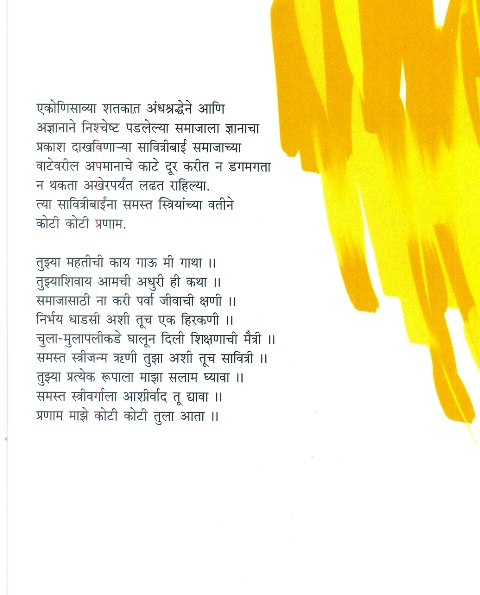 एकोणिसाव्या शतकात अंधश्रद्धेने आणि
अज्ञानाने निश्चेष्ट पडलेल्या समाजाला ज्ञानाचा
प्रकाश दाखविणाऱ्या सावित्रीबाई समाजाच्या
वाटेवरील अपमानाचे काटे दूर करीत न डगमगता
न थकता अखेरपर्यंत लढत राहिल्या.
त्या सावित्रीबाईंना समस्त स्त्रियांच्या वतीने
कोटी कोटी प्रणाम.
तुझ्या महतीची काय गाऊ मी गाथा ॥
तुझ्याशिवाय आमची अधुरी ही कथा ॥
समाजासाठी ना करी पर्वा जीवाची क्षणी ॥
निर्भय धाडसी अशी तूच एक हिरकणी ॥
चुला-मुलापलीकडे घालून दिली शिक्षणाची मैत्री ॥
समस्त स्त्रीजन्म ऋणी तुझा अशी तूच सावित्री ॥
तुझ्या प्रत्येक रूपाला माझा सलाम घ्यावा ॥
समस्त स्त्रीवर्गाला आशीर्वाद तू द्यावा ॥
प्रणाम माझे कोटी कोटी तुला आता ॥